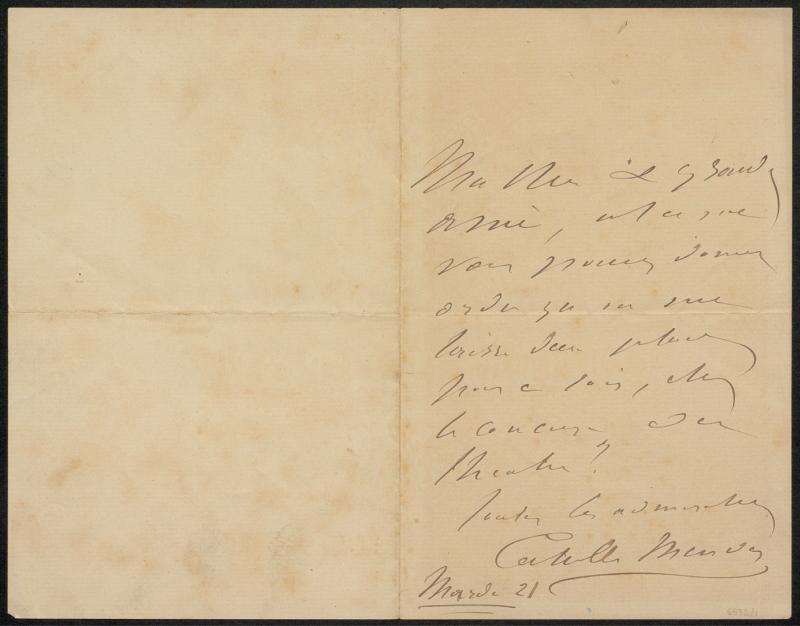 Ma chère et grande
amie, est ce que
vous pouvez donner
ordre qu'on me
laisse deux places
pour ce soir, chez
le concierge du
théâtre?
Toutes les admirations
Catulle Mendès
Mardi 21